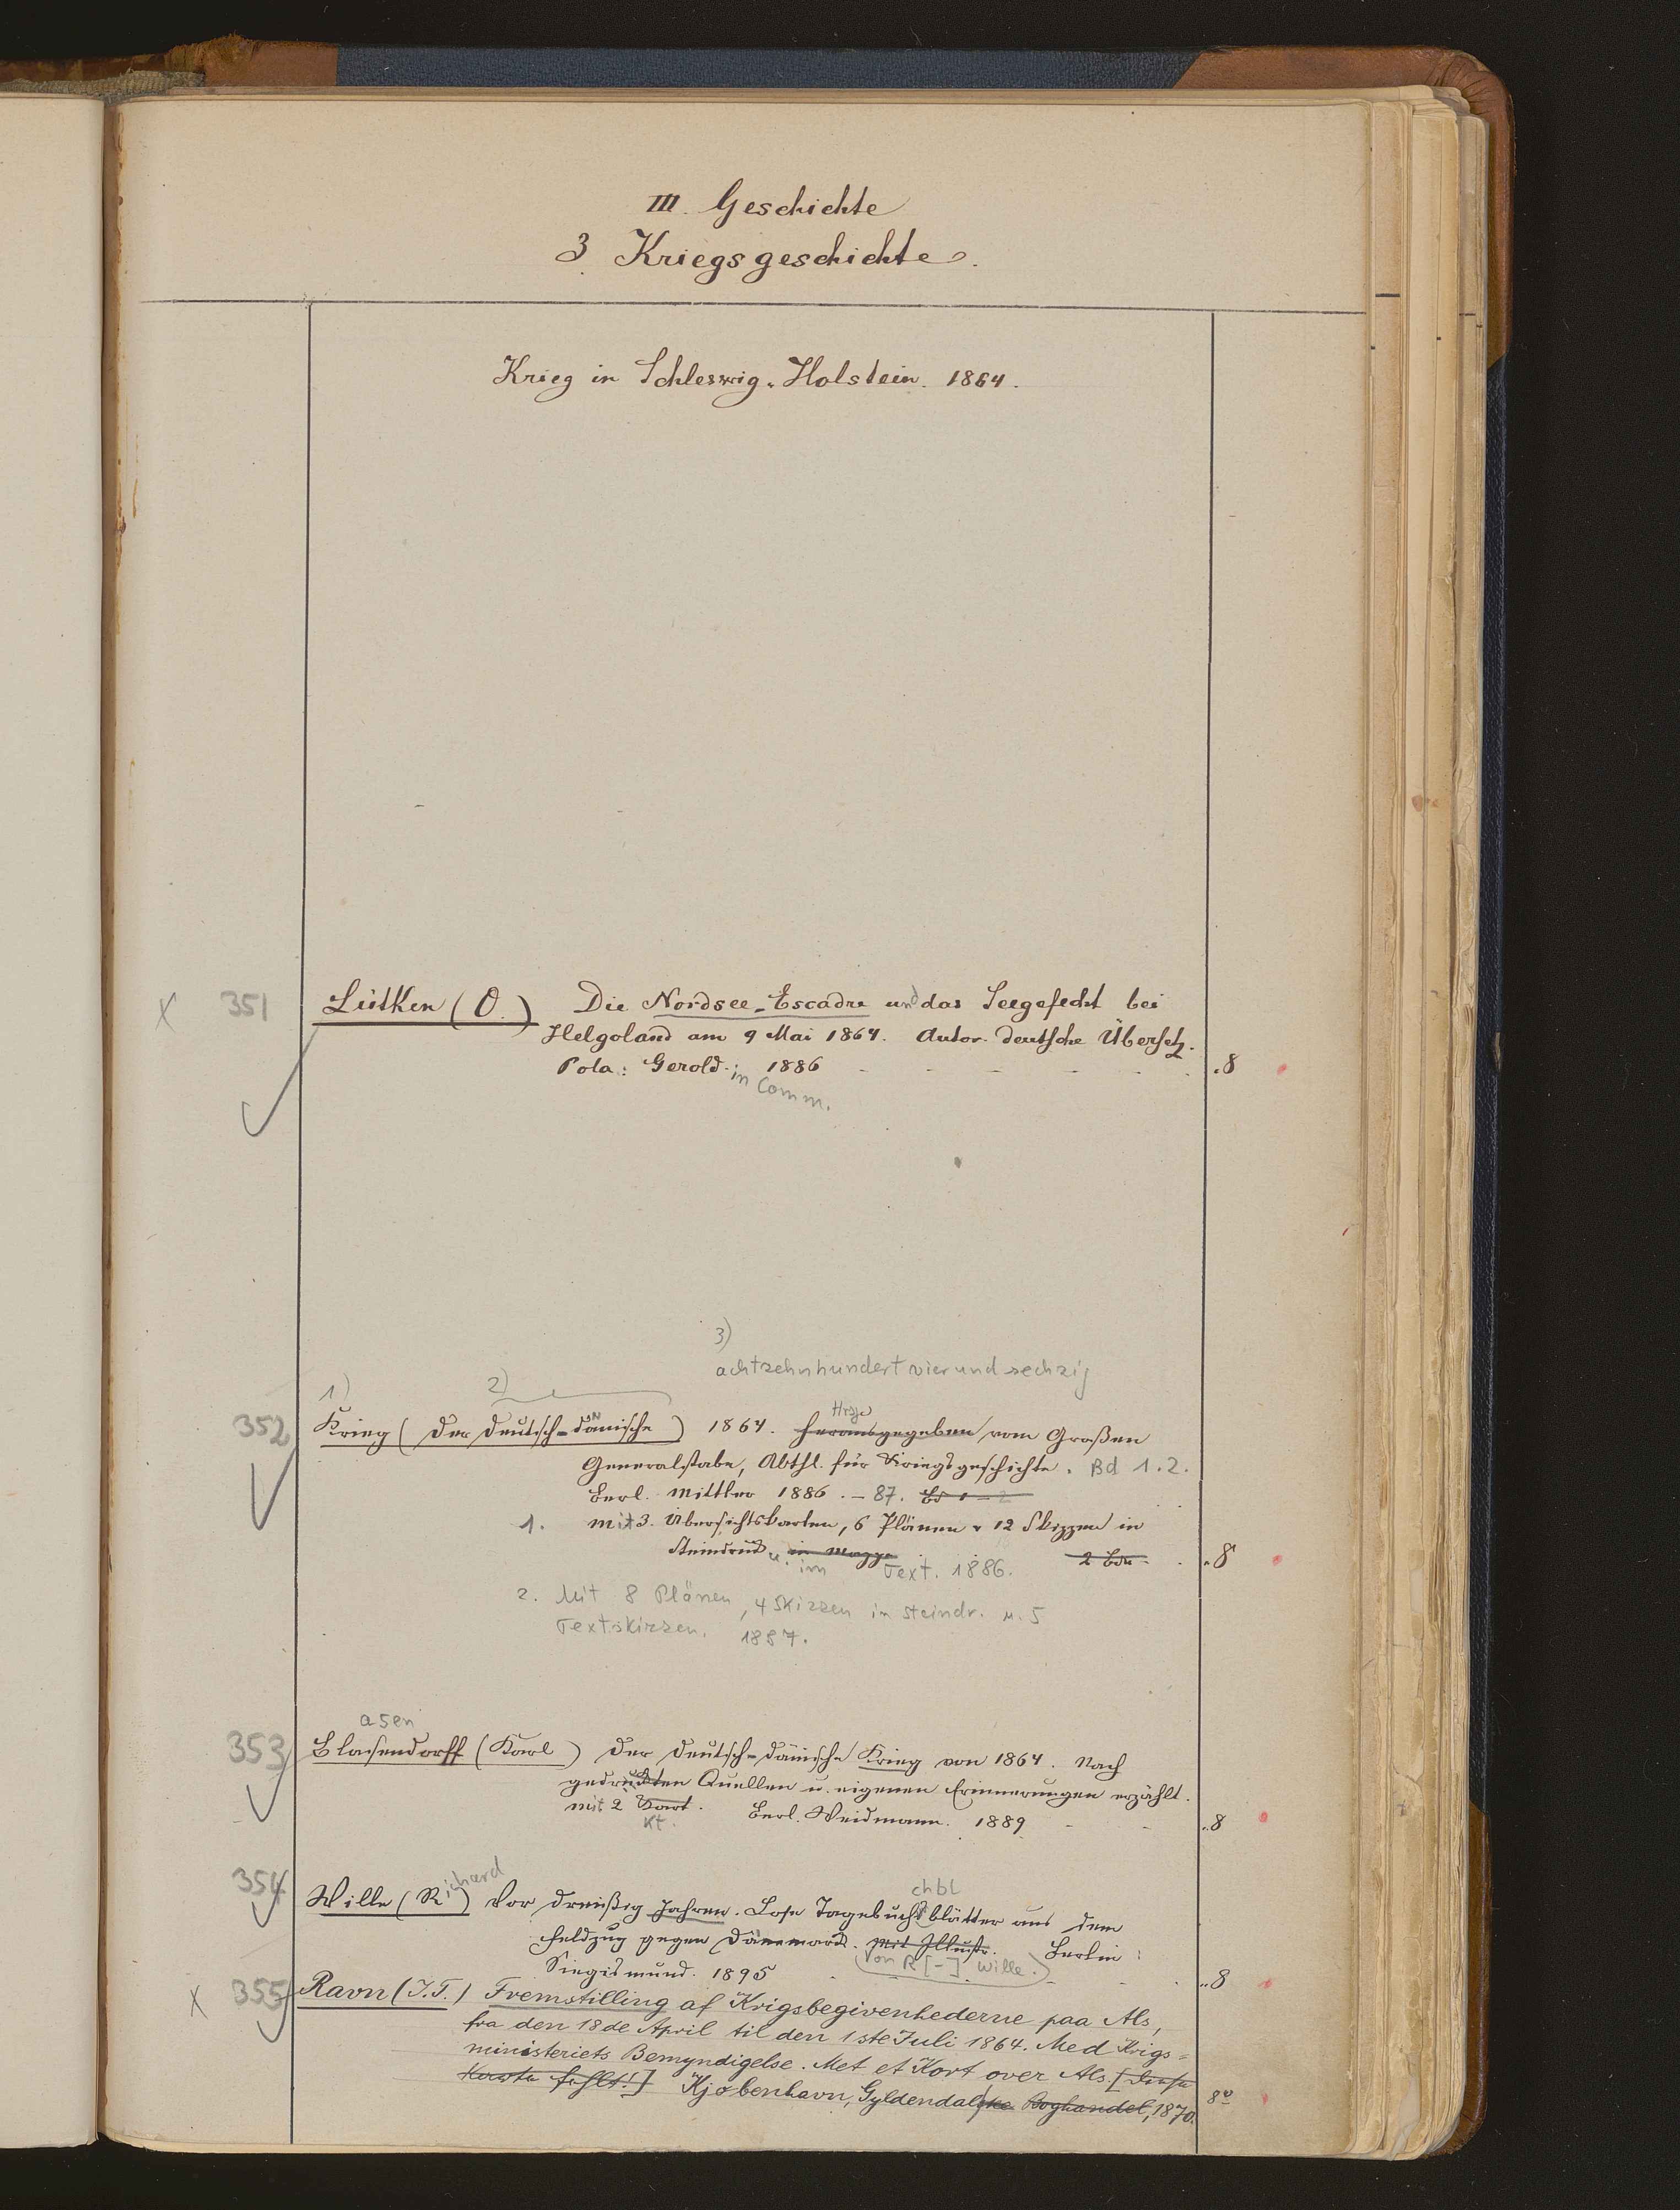 III. Geschichte
3. Kriegsgeschichte.
Krieg in Schleswig-Holstein. 1864.
X 351 Lütken (O.) Die Nordsee-Escadre und das Seegefecht bei
Helgoland am 9 Mai 1864. Autor. deutsche Übersetz.
Pola: Gerold. in Comm. 1886 - - - - - 8
3)
achtzehnhundertvierundsechzig
1) 2)
Hrsg
352 Krieg (Der deutsch-dänische) 1864. Herausgegeben vom Großen
Generalstabe, Abthl. für Kriegsgeschichte. Bd 1.2.
Berl. Mittler 1886. - 87. Bd 1-2
1. Mit 3 Übersichtskarten, 6 Plänen u 12 Skizzen in
Steindruck u. in Mappe 2 Bde. 8
im Text. 1886.
2. Mit 8 Plänen, 4 Skizzen in Steindr. u. 5
Textskizzen. 1887.
asen
353 Blasendorff (Karl) Der deutsch-dänische Krieg von 1864. Nach
gedruckten Quellen u. eigenen Erinnerungen erzählt.
Mit 2 Kart. Berl. Weidmann. 1889 - - 8
Kt.
chbl
354 Wille (Richard) Vor dreißig Jahren. Lose Tagebuchblätter aus dem
Feldzug gegen Dänemark. Mit Illustr. Berlin:
(Von R [-] Wille.)
Siegismund. 1895 - - - 8
X 355 Ravn (J.T.) Fremstilling af Krigsbegivenhederne paa Als,
fra den 18de April til den 1ste Juli 1864. Med Krigs=
ministeriets Bemyndigelse. Met et Kort over Als. [Diese
Karte fehlt!] Kjøbenhavn, Gyldendalske Boghandel, 1870. 8º